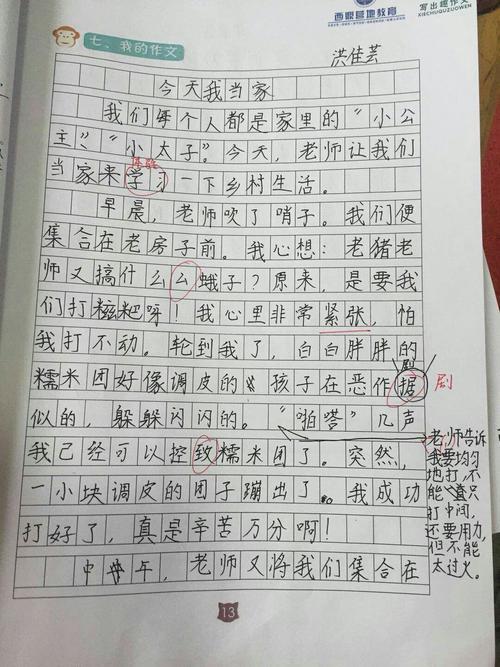 西顺营地教育
写出趣作文
XIECHUQUZUOWEN
七、我的作文
洪佳芸
今天我当家
我们每个人都是家里的“小公
主”“小太子”。今天，老师让我们
体验
当家来学习一下乡村生活。
早晨，老师吹了哨子。我们便
集合在老房子前。我心想：老猪老
师又搞什么么蛾子？原来，是要我
们打糍粑呀！我心里非常紧张，怕
我打不动。轮到我了，白白胖胖的
剧
糯米团好像调皮的孩子在恶作据 剧
似的，躲躲闪闪的。“啪嗒”几声
老师告诉
我要均匀
地打，不
能只
打中间，
还要用力，
但不能
太过火。
我已经可以控致糯米团了。突然，
一小块调皮的团子蹦出了。我成功
打好了，真是辛苦万分啊！
中午，老师又将我们集合在
13